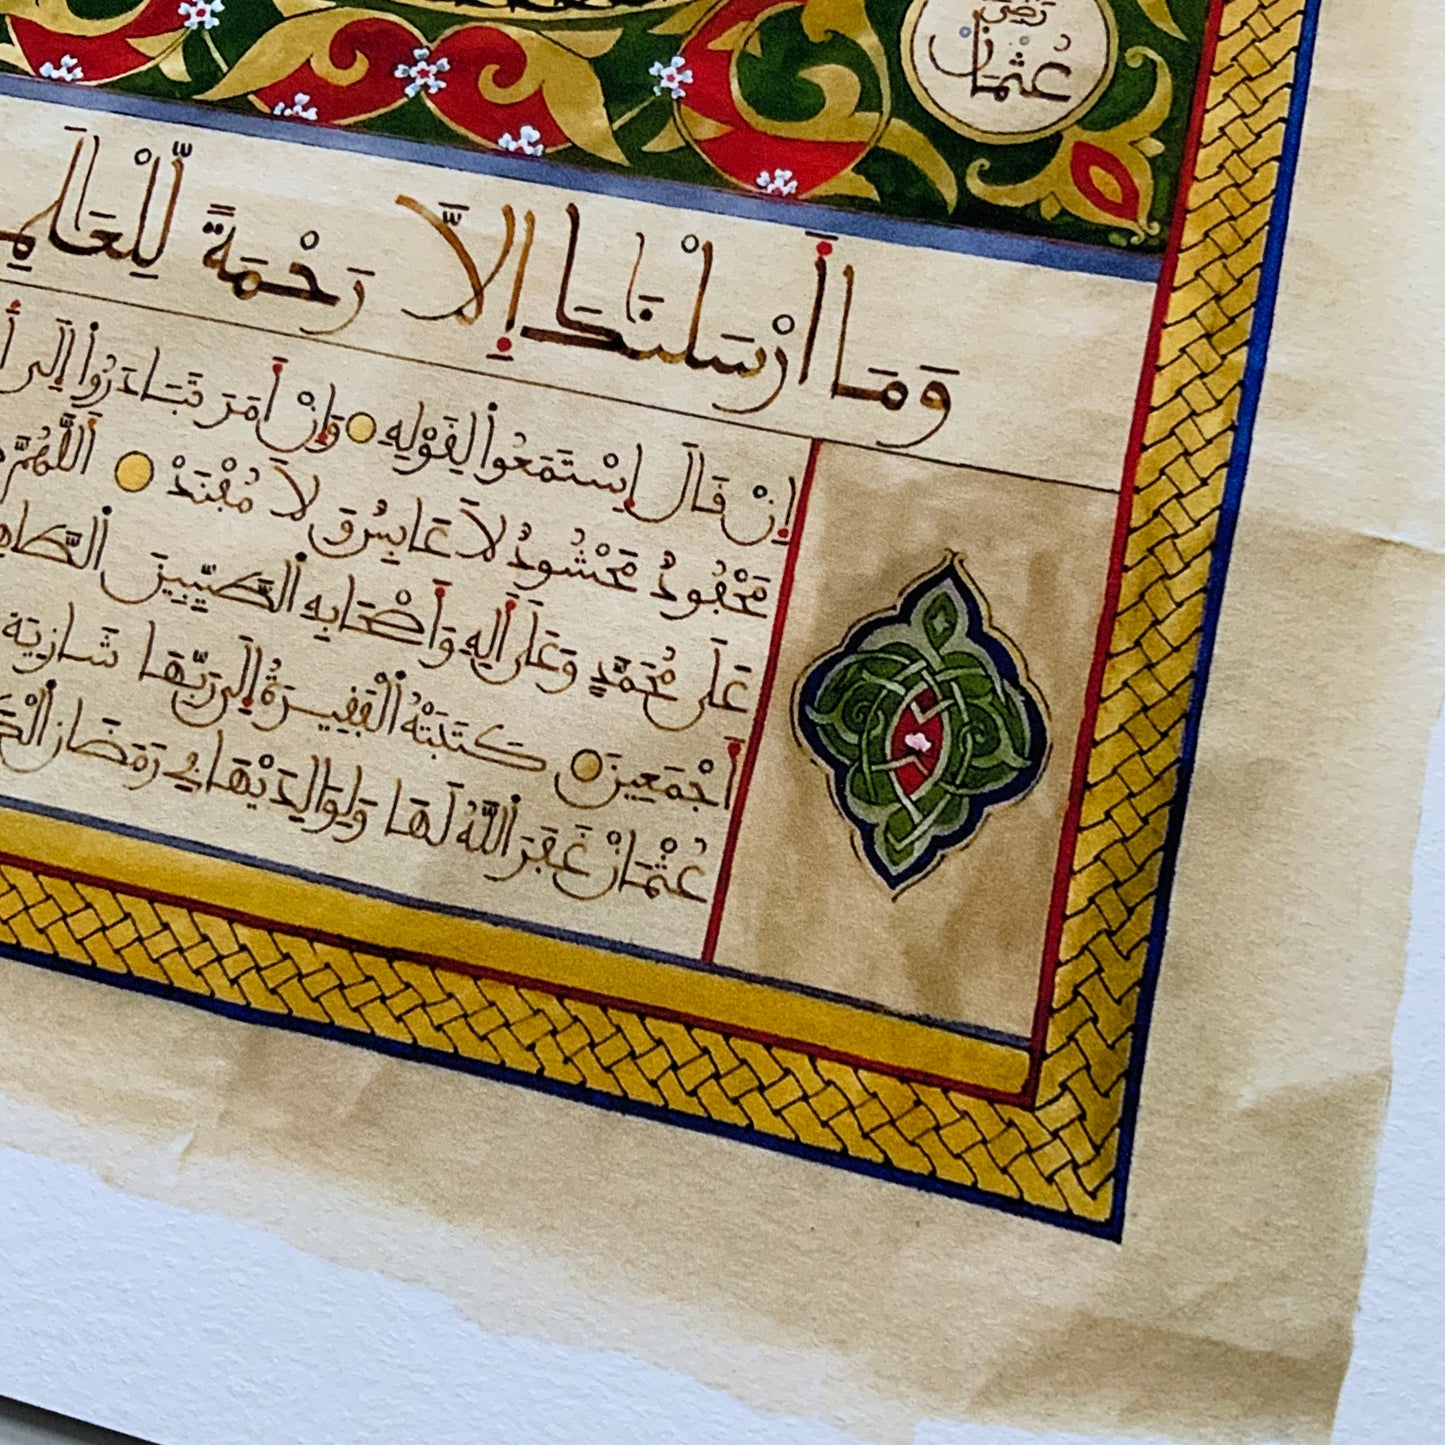 عُثْمَان رَضِيَ
وَمَا أَرْسَلْنَاكَ إِلَّا رَحْمَةً لِّلْعَالَمِ
إِنْ قَالَ اِسْتَمَعُوا لِقَوْلِهِ وَإِنْ أَمَرَ تَبَادَرُوا إِلَى أَ
مَحْفُودٌ مَحْشُودٌ لَا عَابِسٌ وَلَا مُفْنَدْ اَللَّهُمَّ
عَلَى مُحَمَّدٍ وَعَلَى آلِهِ وَأَصْحَابِهِ الطَّيِّبِينَ الطَّاهِ
أَجْمَعِينَ كَتَبَتْهُ الْفَقِيرَةُ إِلَى رَبِّهَا شَازِيَة
عُثْمَانْ غَفَرَ اللَّهُ لَهَا وَلِوَالِدَيْهَا فِي رَمَضَان